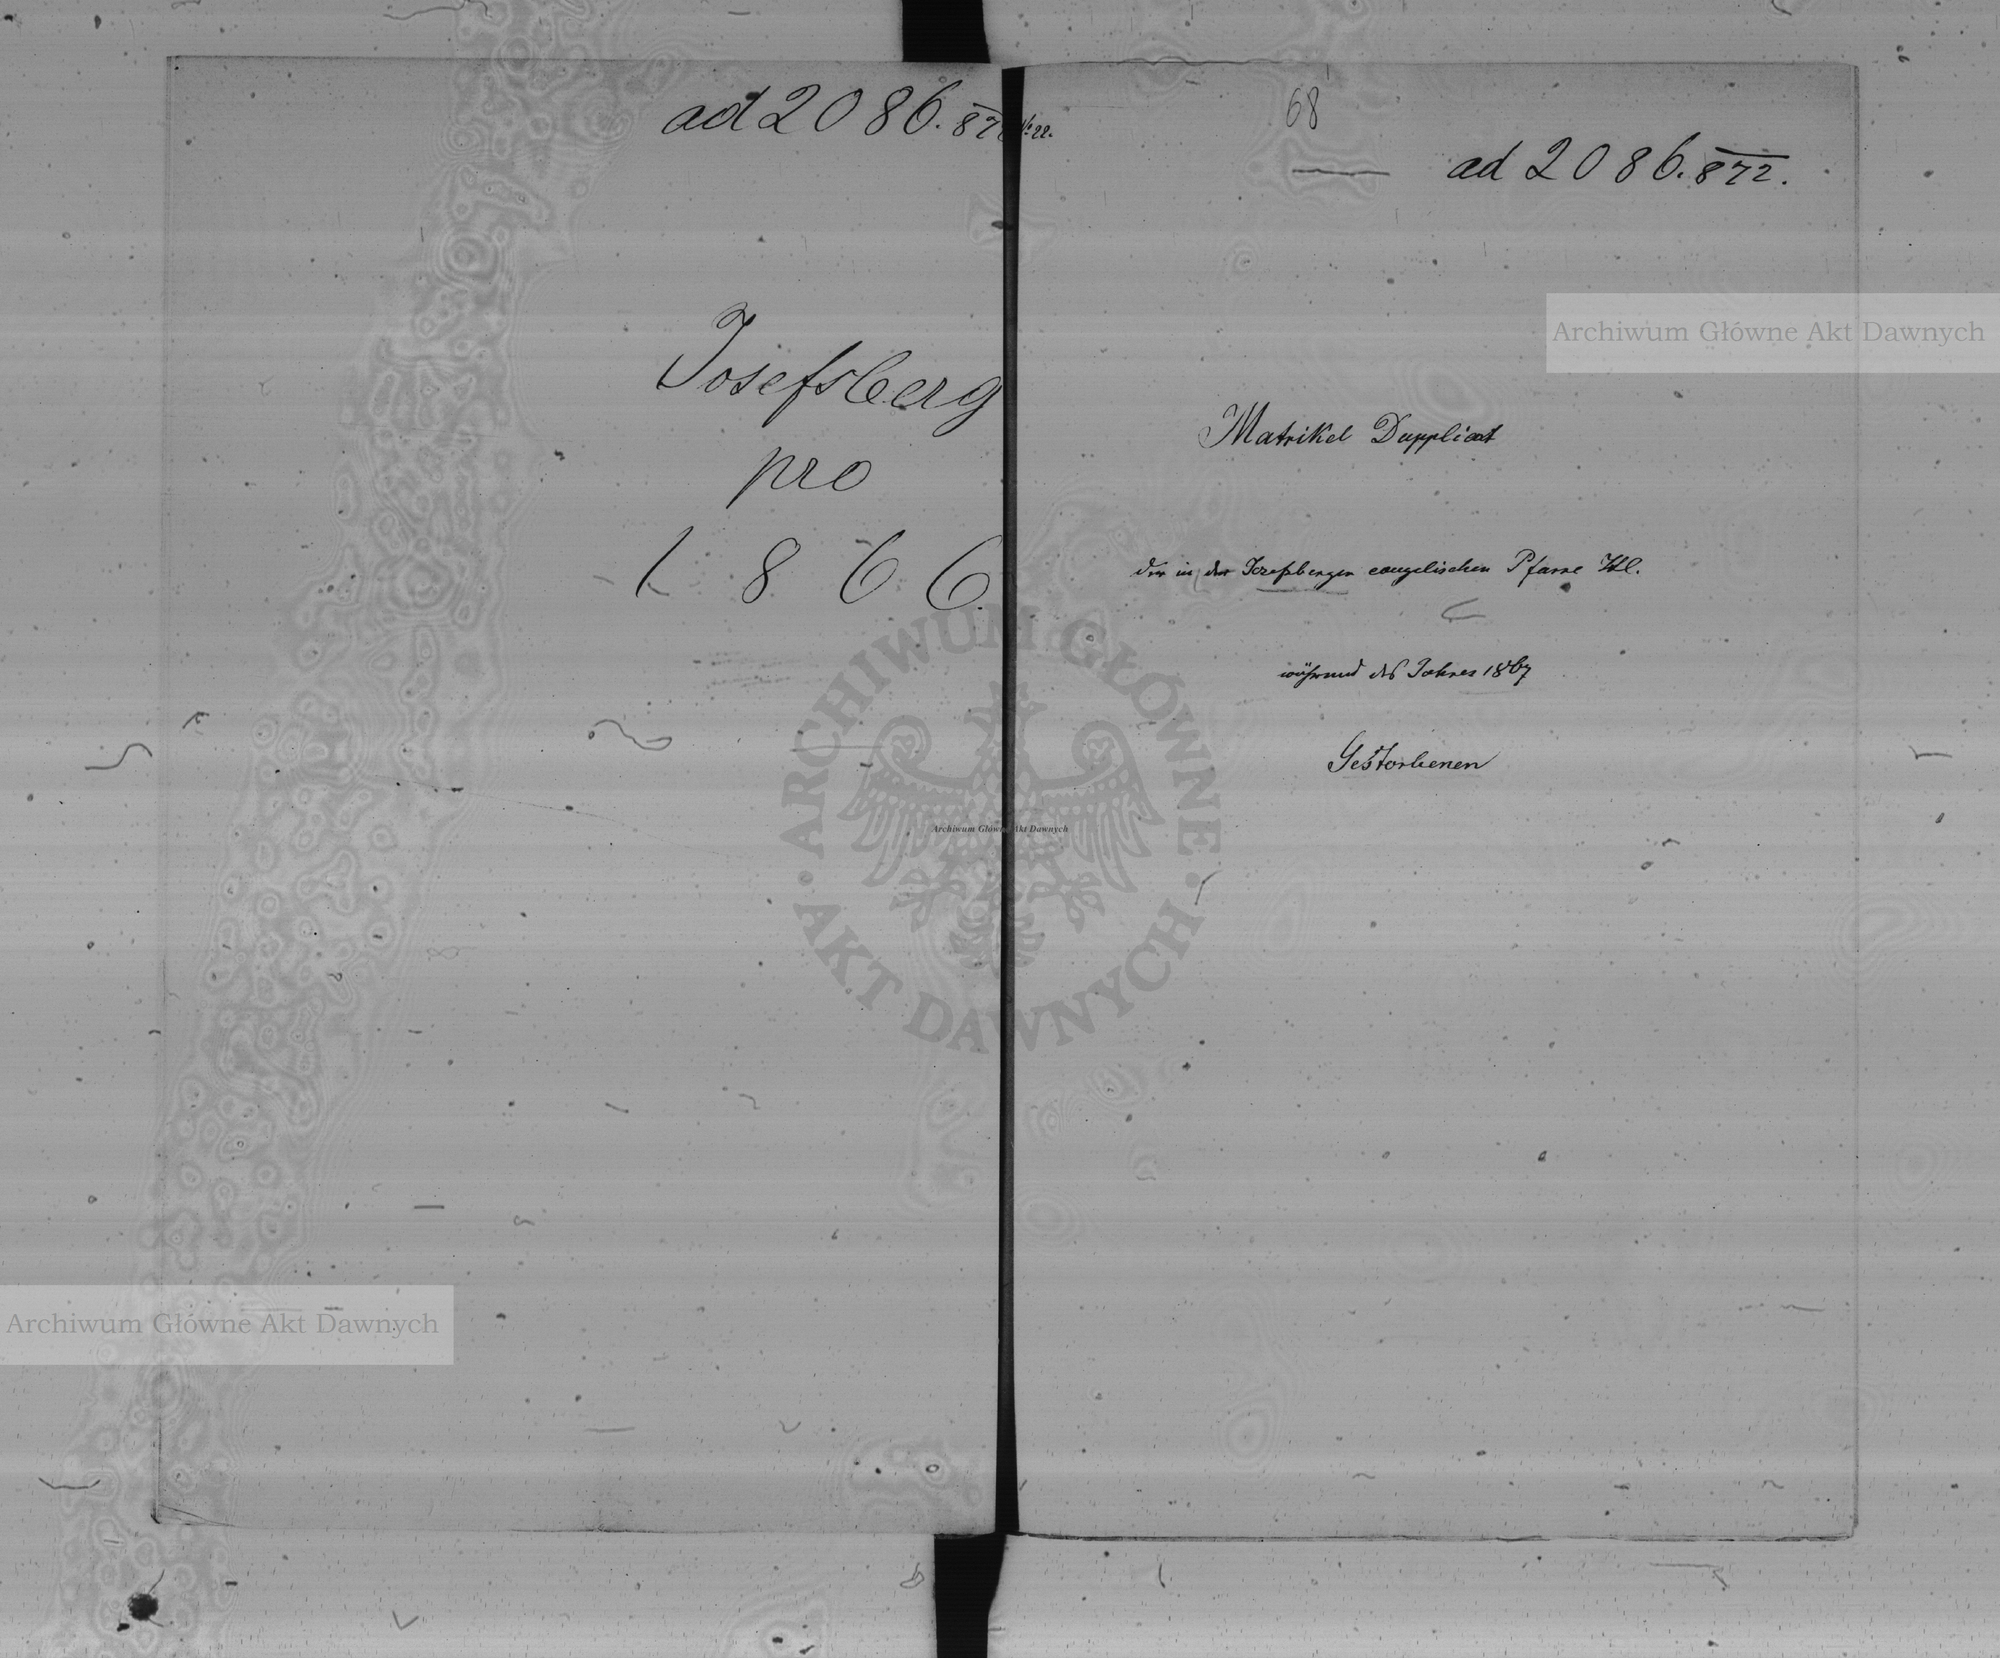 ad 2086. 872
Josefsberg
pro
1866.
No 22.
68
ad 2086. 872.
Archiwum Główne Akt Dawnych
Matrikel Dupplicat
der in der Josefsberger evangelischen Pfarre
während des Jahres 1867
Gestorbenen
ARCHIWUM GŁÓWNE · AKT DAWNYCH ·
Archiwum Główne Akt Dawnych
Archiwum Główne Akt Dawnych